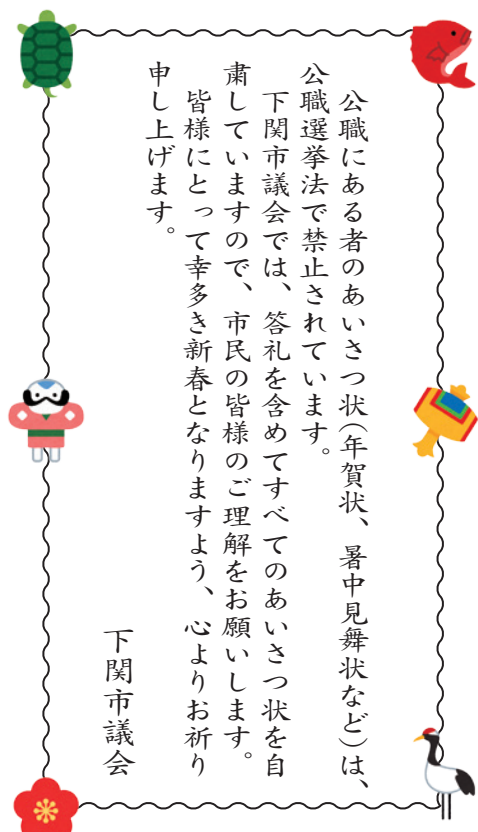 公職にある者のあいさつ状(年賀状、暑中見舞状など)は、
公職選挙法で禁止されています。
下関市議会では、答礼を含めてすべてのあいさつ状を自
粛していますので、市民の皆様のご理解をお願いします。
皆様にとって幸多き新春となりますよう、心よりお祈り
申し上げます。
下関市議会